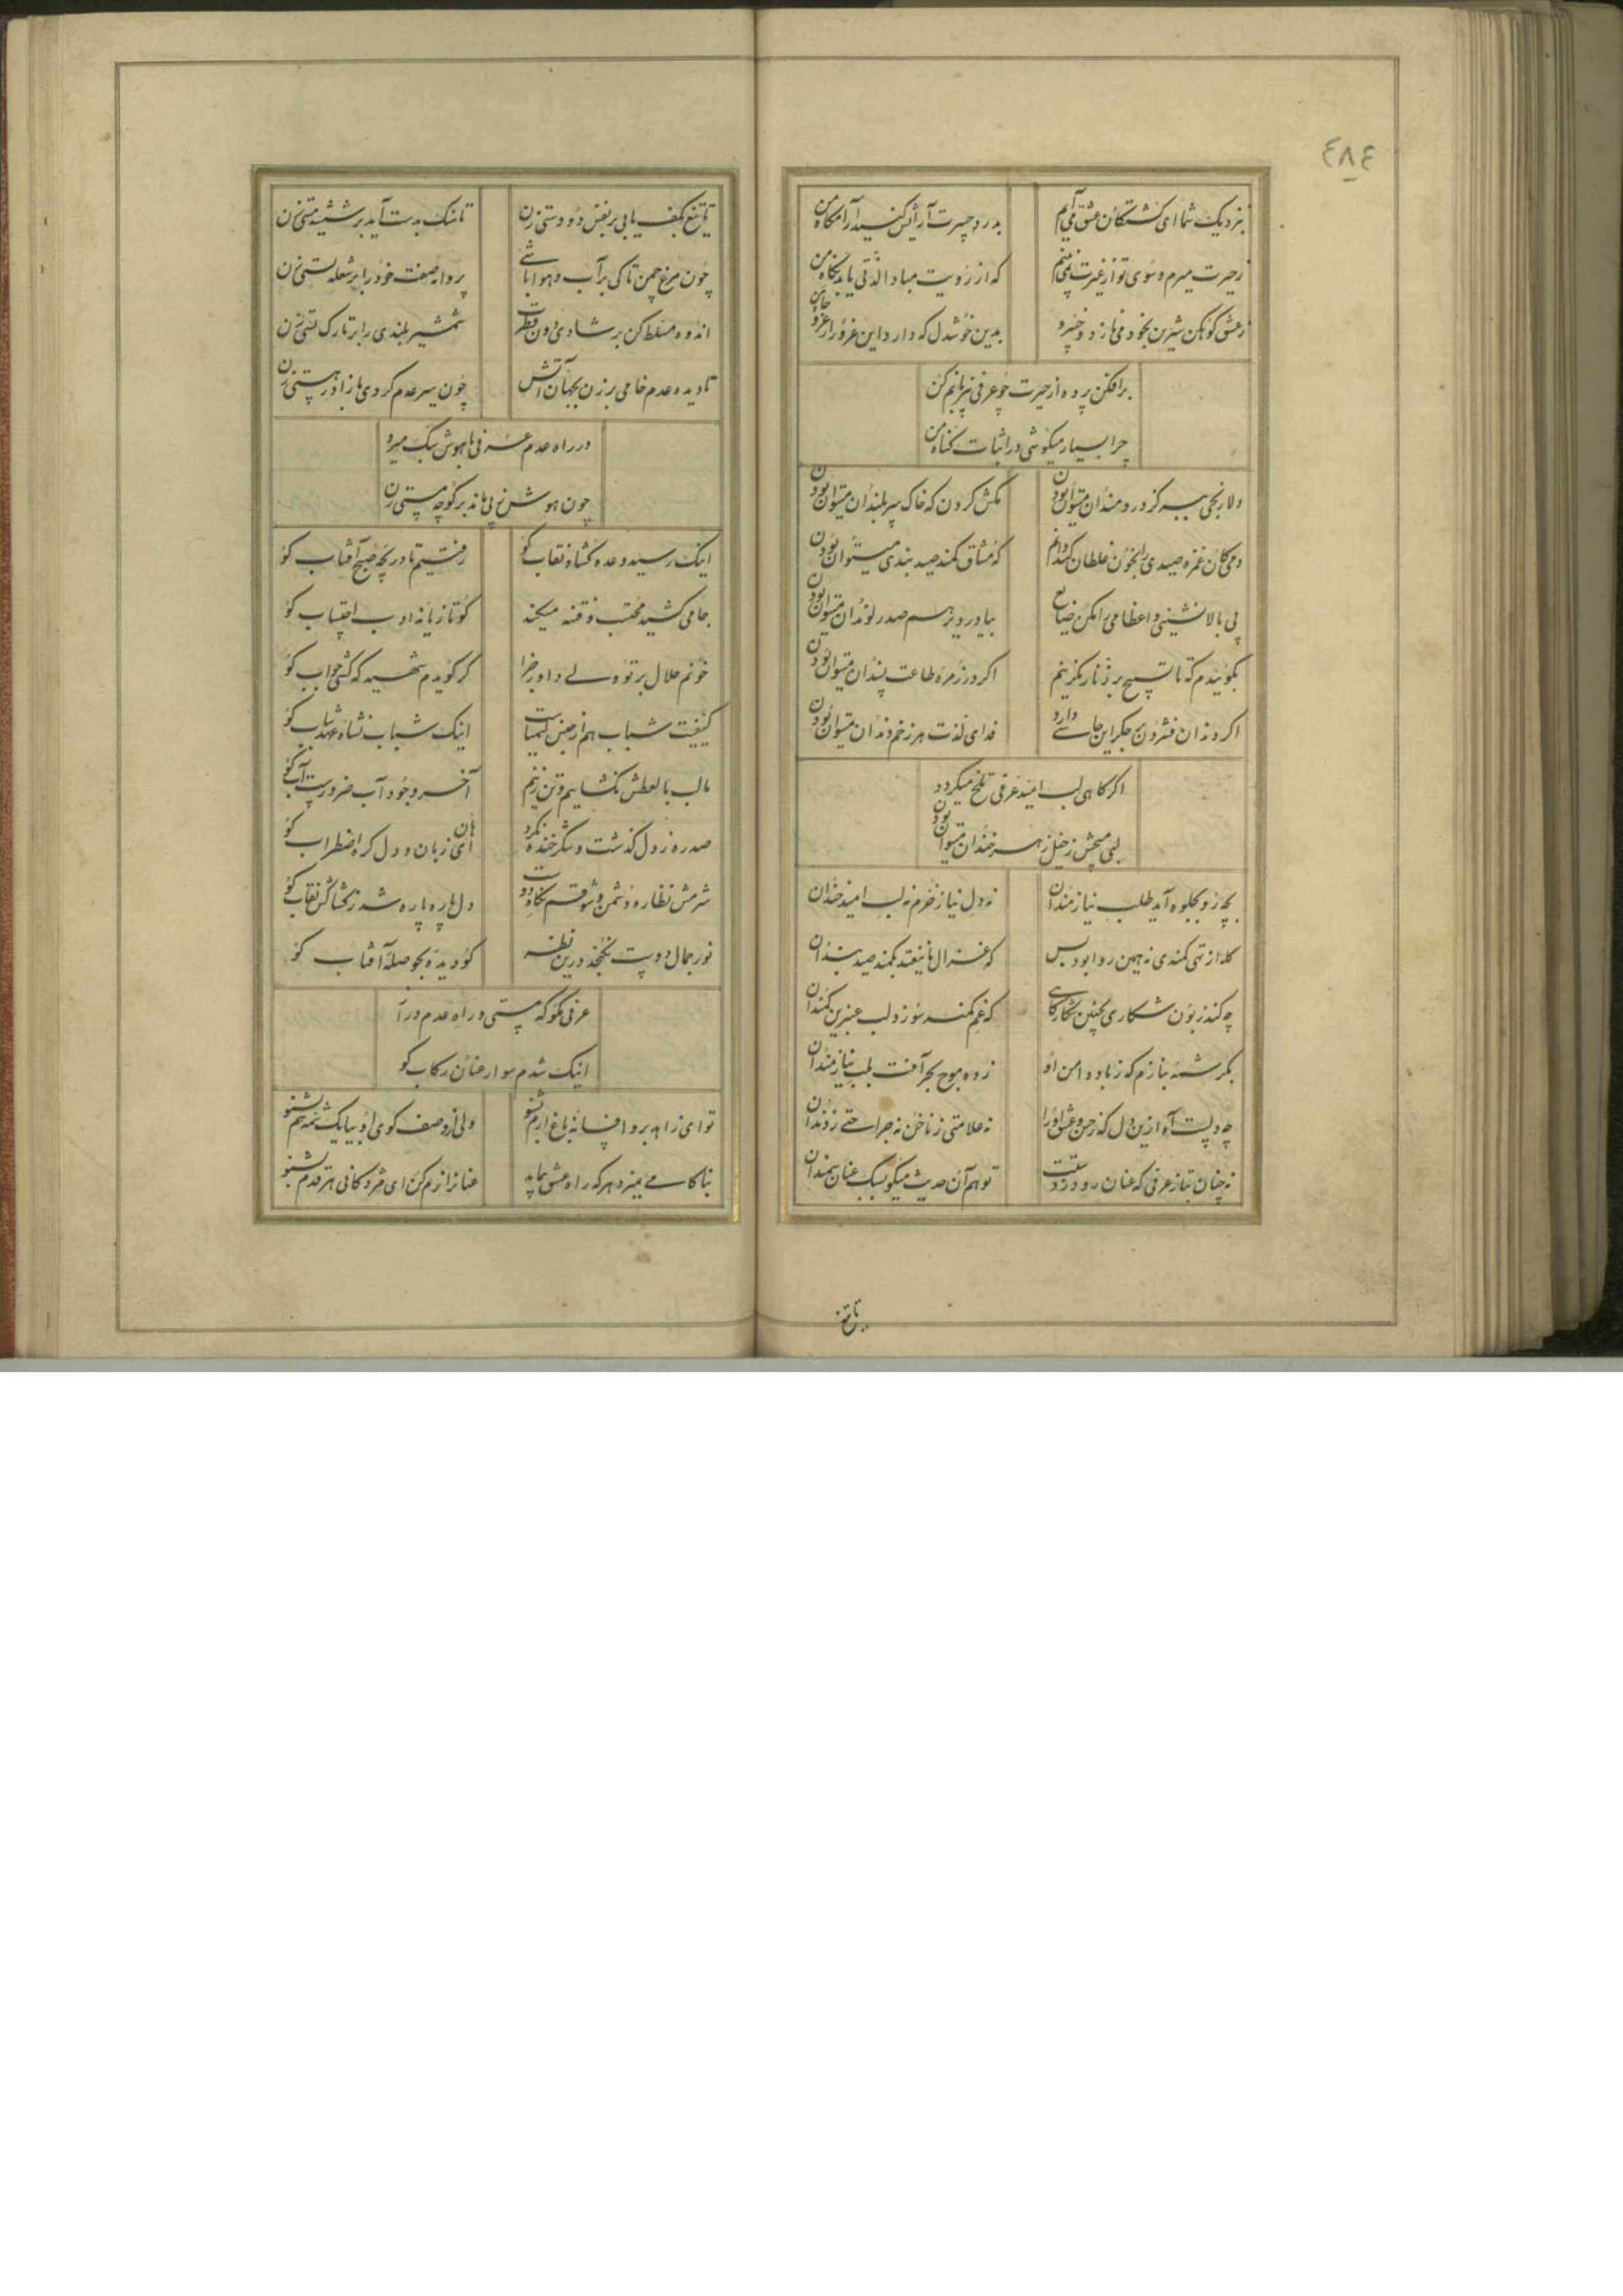 ٤٨٤
بنزدیک شما ای کشتکان عشق می آیم
بدرد حسرت آرایش کنید آرامکاه من
ز حیرت میرم و سوی تو از غیرت نمی بینم
که از رویت مبادا لذتی یابد نکاه من
ز عشق کوهکن شیرین بخود می نازد و خسرو
بدین خوشدل که دارد این غرور از عز و جاه من
برافکن پرده از حیرت چو عرفی بی زبانم کن
چرا بسیار میکوشی در اثبات کناه من
دلا رنجی ببر کز دردمندان میتوان بودن
مکش کردن که خاک سربلندان میتوان بودن
که مشتاق کمند صیدبندی میتوان بودن
پی بالانشینی واعظا می را مکن ضایع
بیا در دیر هم صدر لوندان میتوان بودن
بکویندم که تا تسبیح بر زنار نکزینم
اکر در زمره طاعت پسندان میتوان بودن
اکر دندان فشردن بر جکر این چاشنی دارد
فدای لذت هر زخم دندان میتوان بودن
اکر کاهی لب امید عرفی تلخ میکردد
بچه رو بجلوه آید طلب نیازمندان
نه دل نیاز خرم نه لب امید خندان
کله از تهی کمندی نه همین روا بود بس
که غزال ما نیفتد بکمند صیدبندان
چه کند زبون شکاری بچنین شکارکاهی
بکرشمه بنازم که ز باد دامن او
زده موج بحر آفت بلب نیازمندان
نه علامتی ز ناخن نه جراحتی ز دندان
نه چنان بتاز عرفی که عنان رود ز دستت
تو هم آن حدیث میکو سبک عنان سمندان
تا تیغ
تا تیغ بکف یابی بر نفس دودستی زن
تا سنک بدست آید بر شیشه مستی زن
چون مرغ چمن تا کی بر آب و هوا باشی
پروانه صفت خود را بر شعله پستی زن
اندوه مسلط کن بر شادی دون فطرت
شمشیر بلندی را بر تارک پستی زن
تا دیده عدم خامی برزن بجهان آتش
چون سیر عدم کردی باز آ در هستی زن
در راه عدم عرفی با هوش سبک میرو
چون هوش ز پی ماند بر کوچه مستی زن
اینک رسید وعده کشاد نقاب کو
رفتیم تا دریچه صبح آفتاب کو
جامی کشید محتسب و فتنه میکند
کو تازیانه ادب احتساب کو
خونم حلال بر تو ولی داور جزا
کر کویدم شهید که کشتی جواب کو
کیفیت شباب هم از جنس کیمیاست
اینک شباب نشاه عهد شباب کو
ما لب بالعطش نکشاییم و تن زنیم
آخر وجود آب ضرورست آب کو
صد ره ز دل کذشت و شکرخنده نکرد
هان ای زبان و دل کره اضطراب کو
دل پاره پاره شد ز تماشا کن نقاب کو
نور جمال دوست نکنجد درین نظر
کو دیده بحوصله آفتاب کو
عرفی مکو که مستی و راه عدم درآ
اینک شدم سوار عنان رکاب کو
تو ای زاهد برو افسانه باغ ارم بشنو
ولی از وصف کوی او بیا یک شمه هم بشنو
بناکامی بمیرد هر که راه عشق پیماید